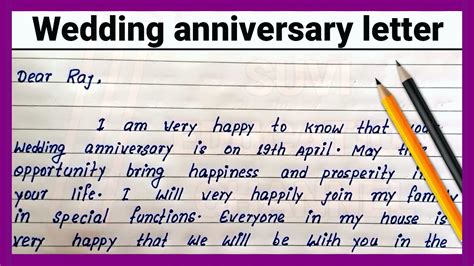 Wedding anniversary letter
Dear Raj.
I am very happy to know that your
wedding anniversary is on 19th April. May
opportunity bring happiness and prosperity in
your life. I will very happily join my family
in special functions. Everyone in my house is
very happy that we will be with you in the